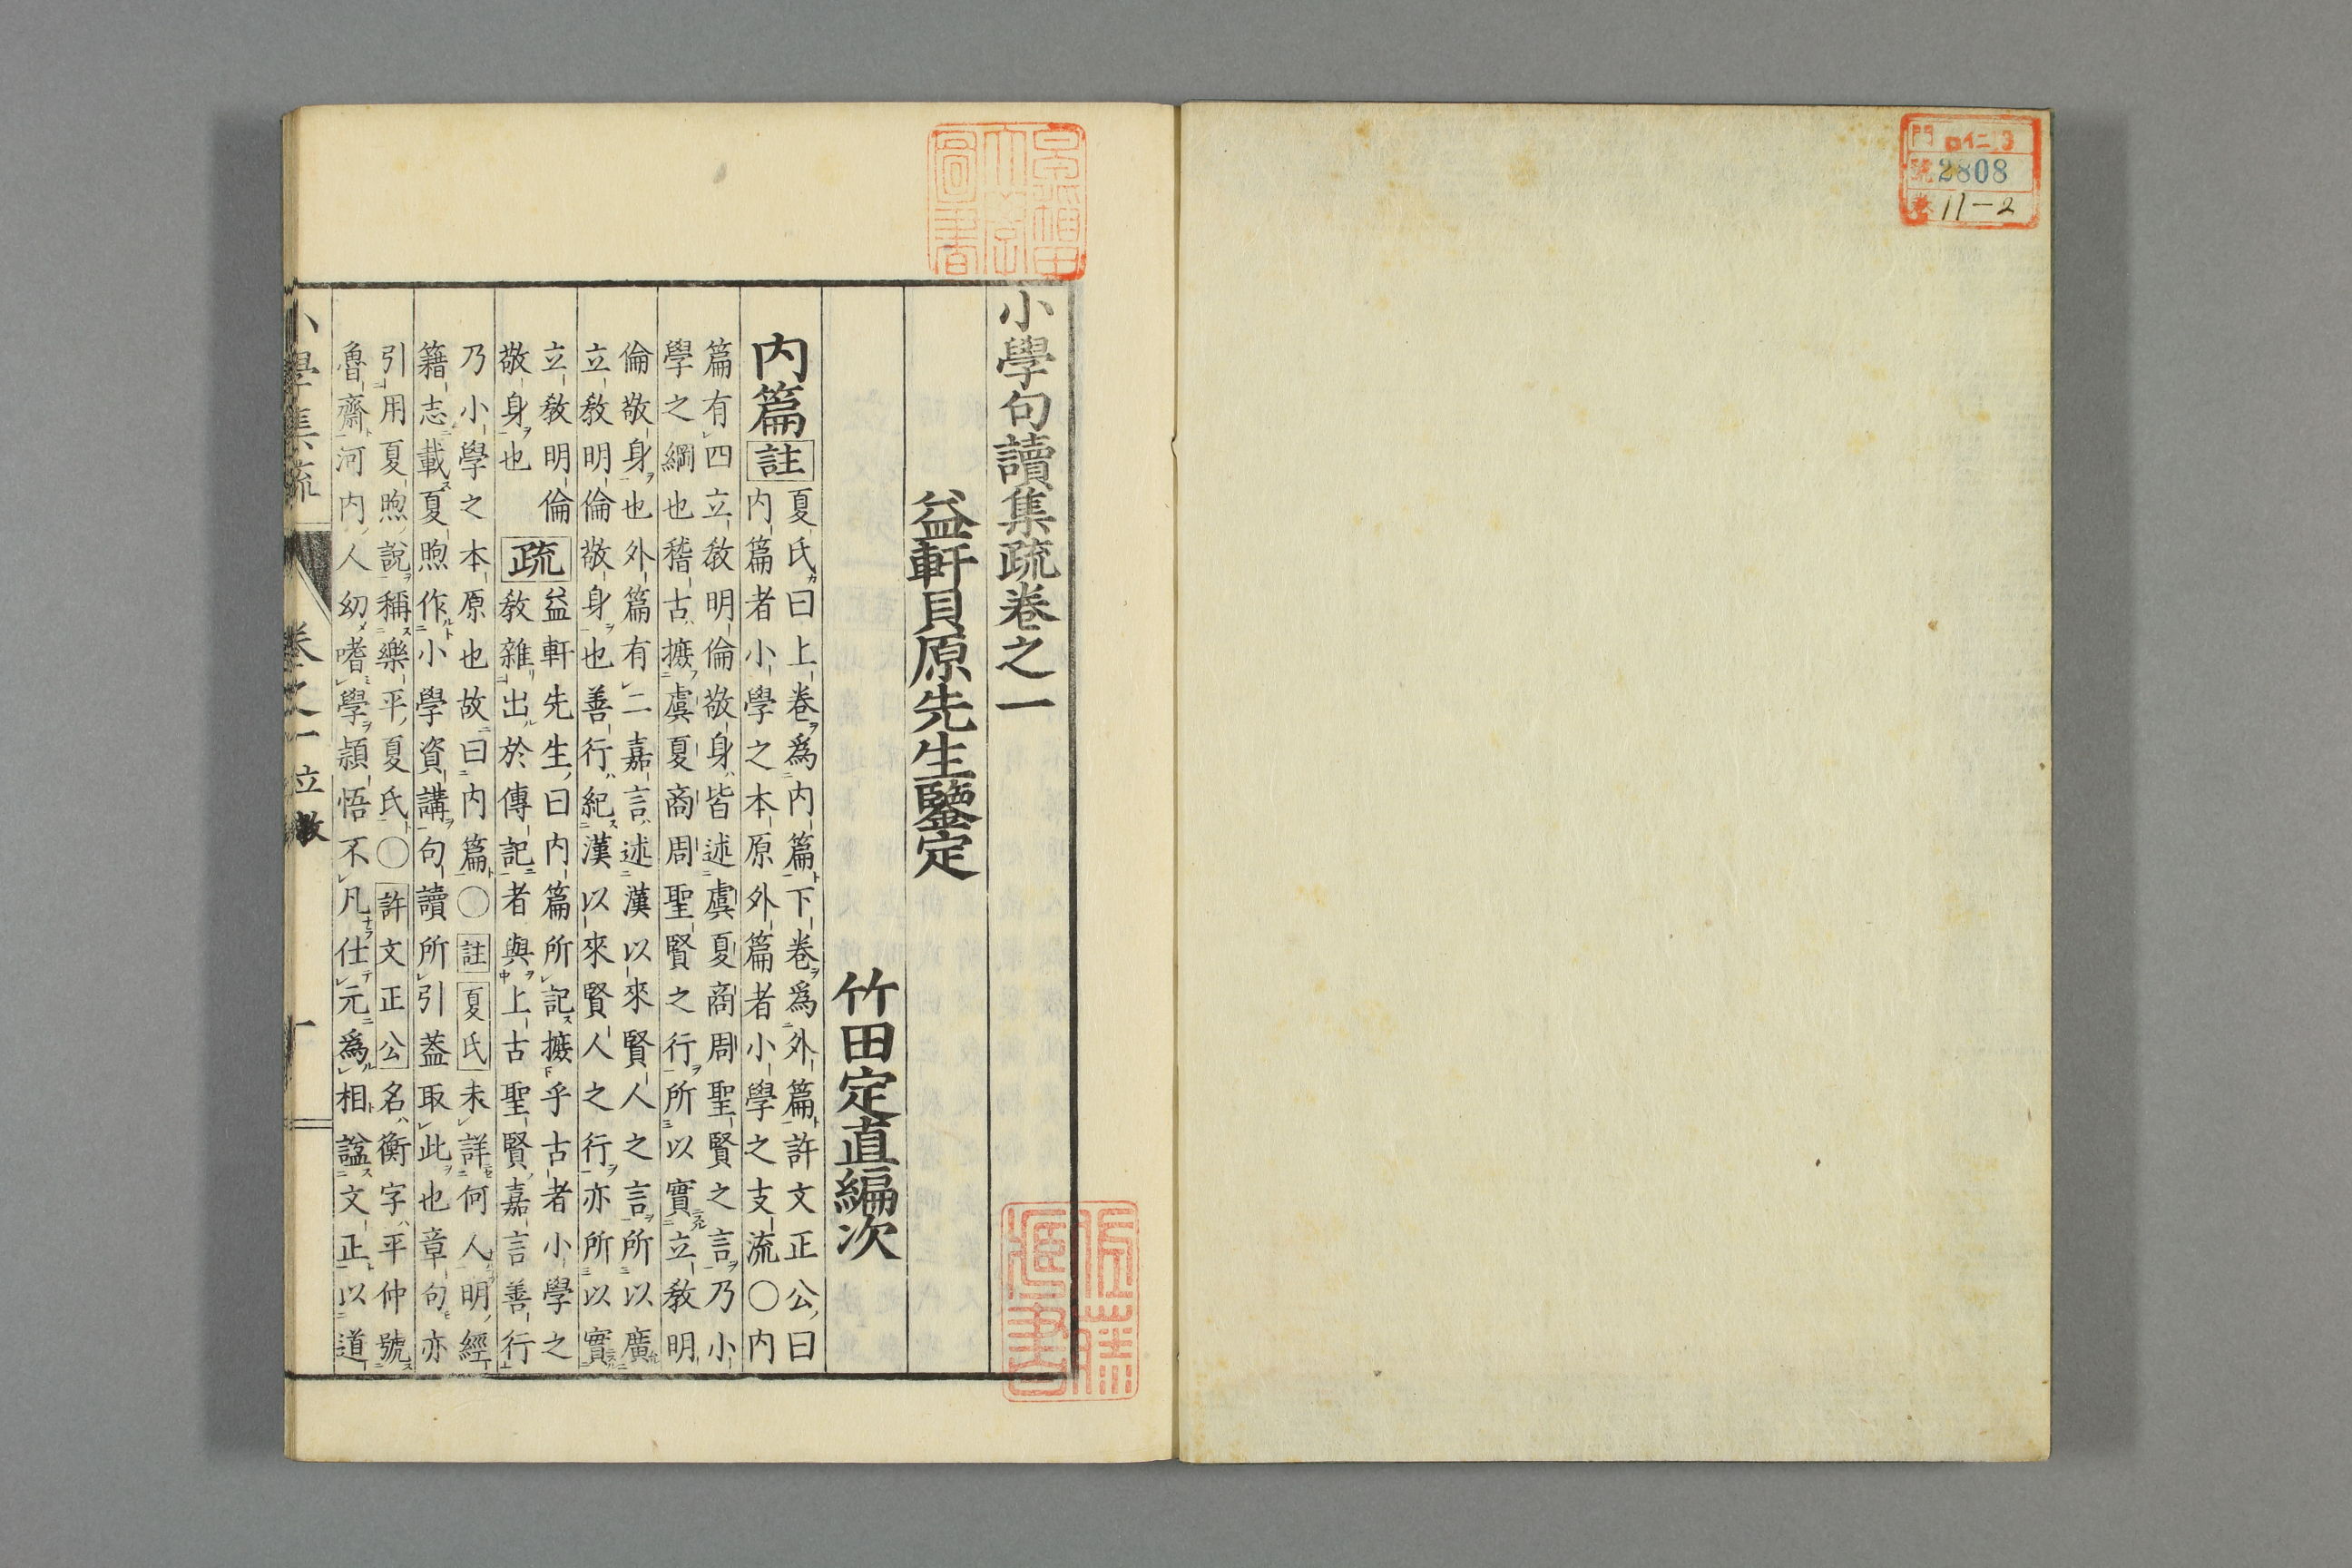 門 ロ仁13
號 2808
卷 11-2
小學句讀集疏卷之一
益軒貝原先生鑒定
竹田定直編次
内篇 註
夏氏曰上卷爲内篇下卷爲外篇許文正公曰
内篇者小學之本原外篇者小學之支流○内
篇有四立敎明倫敬身皆述虞夏商周聖賢之言乃小
學之綱也稽古摭虞夏商周聖賢之行所以實立敎明
倫敬身也外篇有二嘉言述漢以來賢人之言所以廣
立敎明倫敬身也善行紀漢以來賢人之行亦所以實
立敎明倫
敬身也
疏
益軒先生曰内篇所記摭乎古者小學之
敎雜出於傳記者與上古聖賢嘉言善行
乃小學之本原也故曰内篇○註夏氏未詳何人明經
籍志載夏煦作小學資講句讀所引葢取此也章句亦
引用夏煦說稱樂平夏氏○許文正公名衡字平仲號
魯齋河内人幼嗜學頴悟不凡仕元爲相諡文正以道
小學集疏 卷之一 立敎 一
圖書
佐藤
藏書